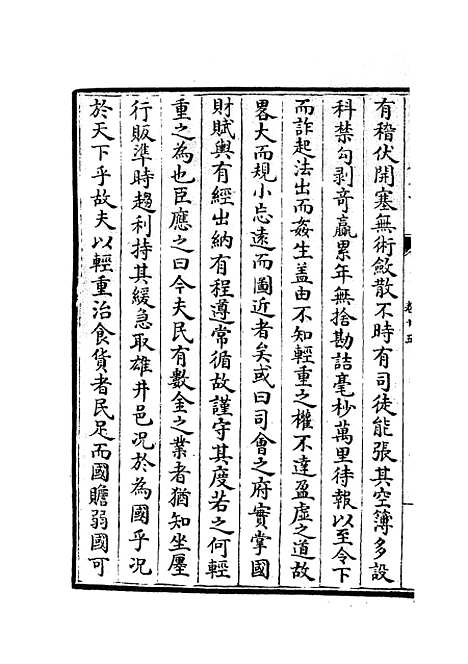 卷十五
有稽伏開塞無術歛散不時有司徒能張其空簿多設
科禁勾剥竒贏累年無捨勘詰毫杪萬里待報以至令下
而詐起法出而姦生盖由不知輕重之權不達盈虛之道故
畧大而規小忘遠而圖近者矣或曰司會之府實掌國
財賦輿有經出納有程遵常循故謹守其度若之何輕
重之為也臣應之曰今夫民有數金之業者猶知坐㕓
行販凖時趨利持其緩急取雄井邑况於為國乎况
於天下乎故夫以輕重治食貨者民足而國贍弱國可